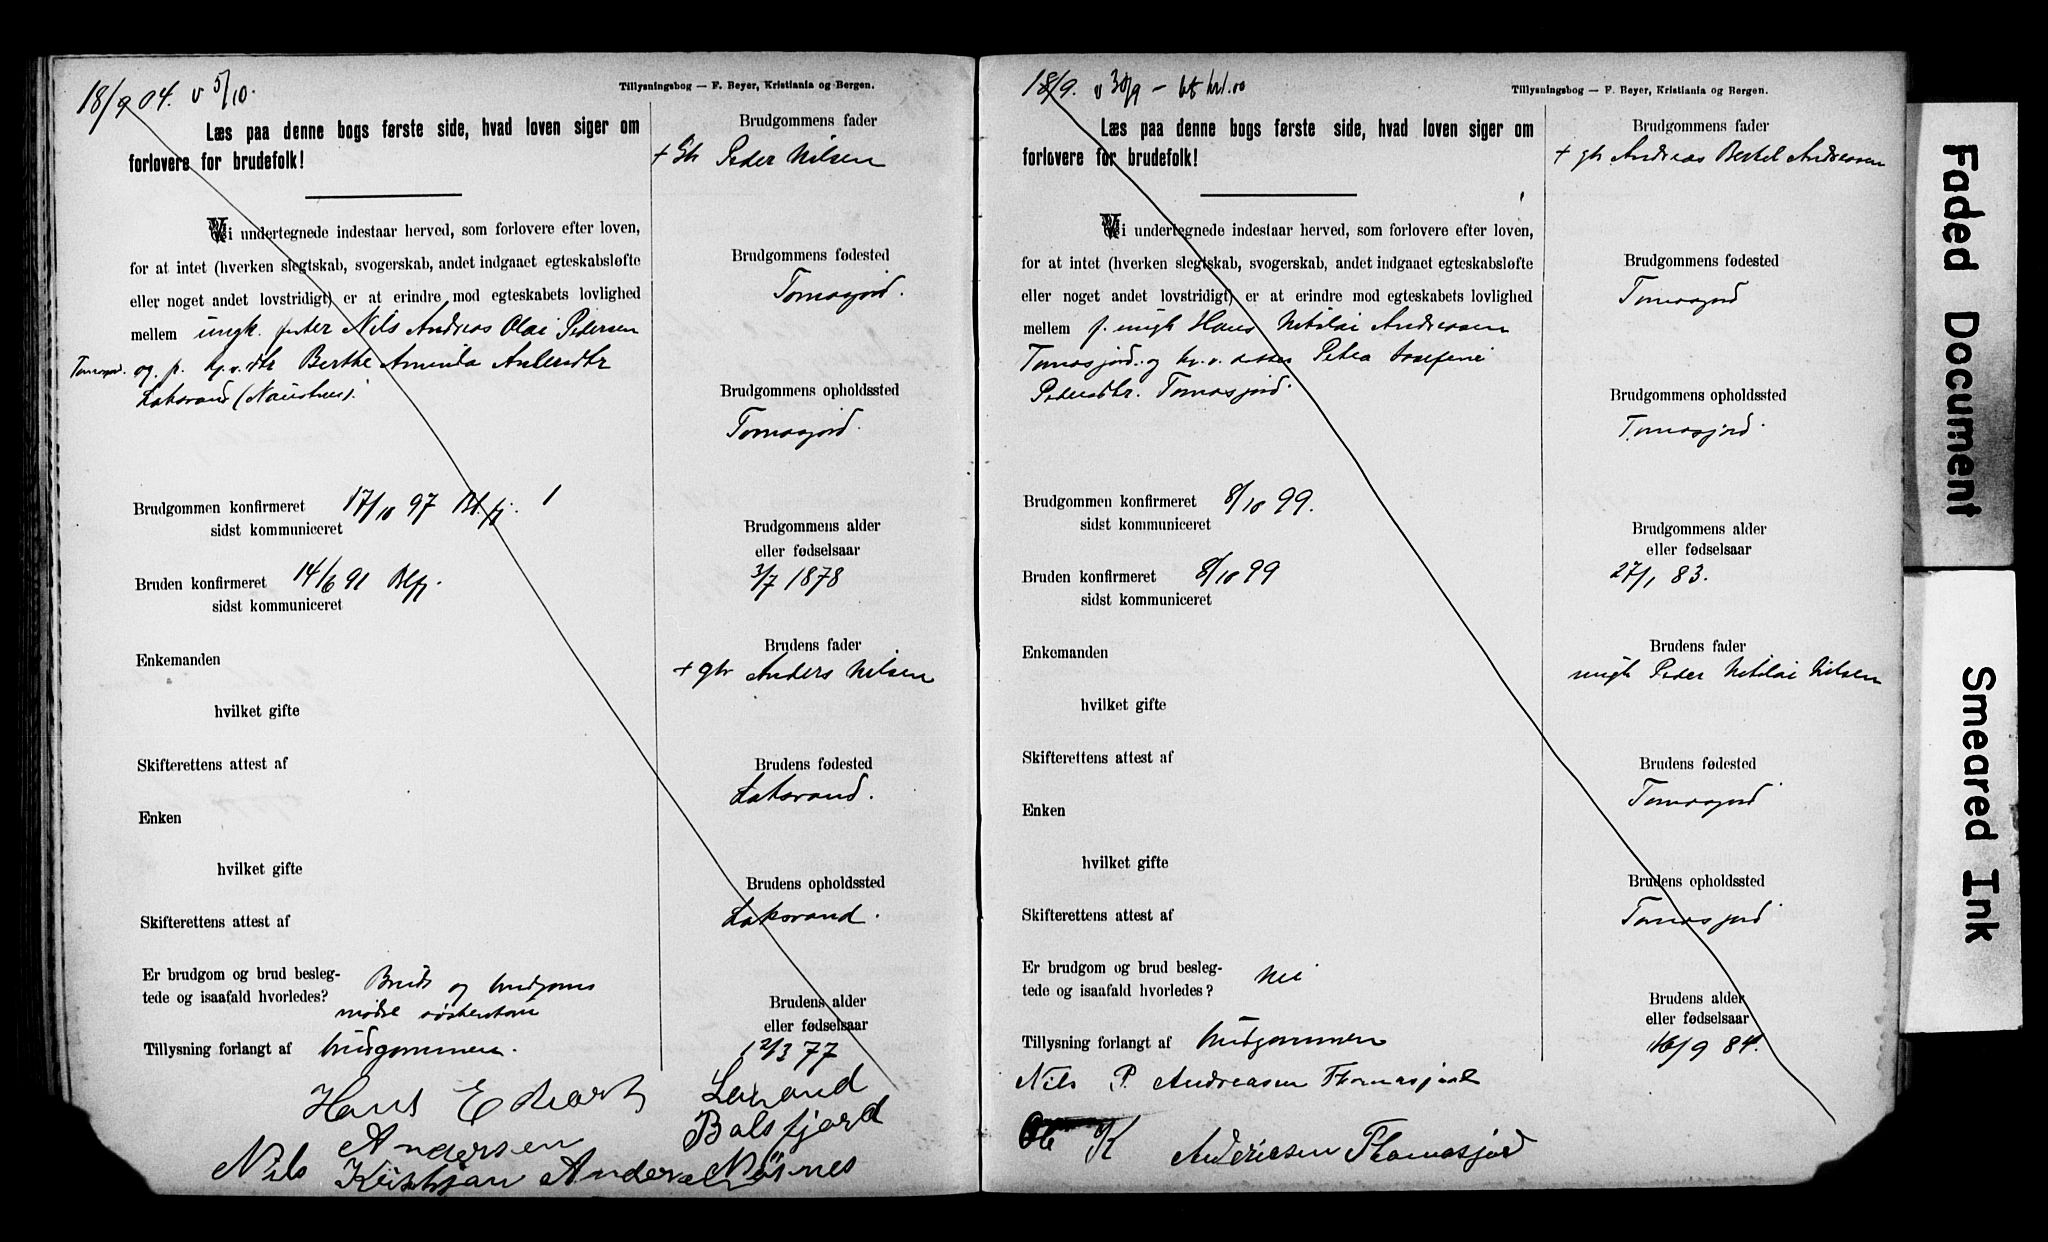 18/9 04. v 5/10.
Tillysningsbog — F. Beyer, Kristiania og Bergen.
Læs paa denne bogs første side, hvad loven siger om
forlovere for brudefolk!
Vi undertegnede indestaar herved, som forlovere efter loven,
for at intet (hverken slegtskab, svogerskab, andet indgaaet egteskabsløfte
eller noget andet lovstridigt) er at erindre mod egteskabets lovlighed
mellem ungk. Nils Andreas Olai Pedersen
og p. Berthe Aminda Andersdtr
Laksvand
Brudgommen konfirmeret 17/10 97 Blfj. 1
sidst kommuniceret
Bruden konfirmeret 14/6 91 Blfj.
sidst kommuniceret
Enkemanden
hvilket gifte
Skifterettens attest af
Enken
hvilket gifte
Skifterettens attest af
Er brudgom og brud besleg-
tede og isaafald hvorledes? Bruds og brudgoms
modre
Tillysning forlangt af brudgommen.
Brudgommens fader
+ Gbr Peder Nilsen
Brudgommens fødested
Tomasjord.
Brudgommens opholdssted
Tomasjord.
Brudgommens alder
eller fødselsaar
3/7 1878
Brudens fader
+ gbr Anders Nilsen
Brudens fødested
Laksvand.
Brudens opholdssted
Laksvand.
Brudens alder
eller fødselsaar
12/3 77
Hans Edvart Laxvand
Andersen Balsfjord
Nils Kristjan Andersen
18/9. v 30/9
Tillysningsbog — F. Beyer, Kristiania og Bergen.
Læs paa denne bogs første side, hvad loven siger om
forlovere for brudefolk!
Vi undertegnede indestaar herved, som forlovere efter loven,
for at intet (hverken slegtskab, svogerskab, andet indgaaet egteskabsløfte
eller noget andet lovstridigt) er at erindre mod egteskabets lovlighed
mellem f. ungk Hans Nikolai Andreassen
Tomasjord. og Petra Josefine
Pedersdtr. Tomasjord.
Brudgommen konfirmeret 8/10 99.
sidst kommuniceret
Bruden konfirmeret 8/10 99
sidst kommuniceret
Enkemanden
hvilket gifte
Skifterettens attest af
Enken
hvilket gifte
Skifterettens attest af
Er brudgom og brud besleg-
tede og isaafald hvorledes? Nei
Tillysning forlangt af brudgommen
Brudgommens fader
+ gbr Andreas Bertel Andreassen
Brudgommens fødested
Tomasjord
Brudgommens opholdssted
Tomasjord.
Brudgommens alder
eller fødselsaar
27/1 83.
Brudens fader
ungk Peder Nikolai Nilsen
Brudens fødested
Tomasjord
Brudens opholdssted
Tomasjord
Brudens alder
eller fødselsaar
16/9 84.
Nils P. Andreasen Thomasjord
K Andriesen Thomasjord
Faded Document
Smeared Ink